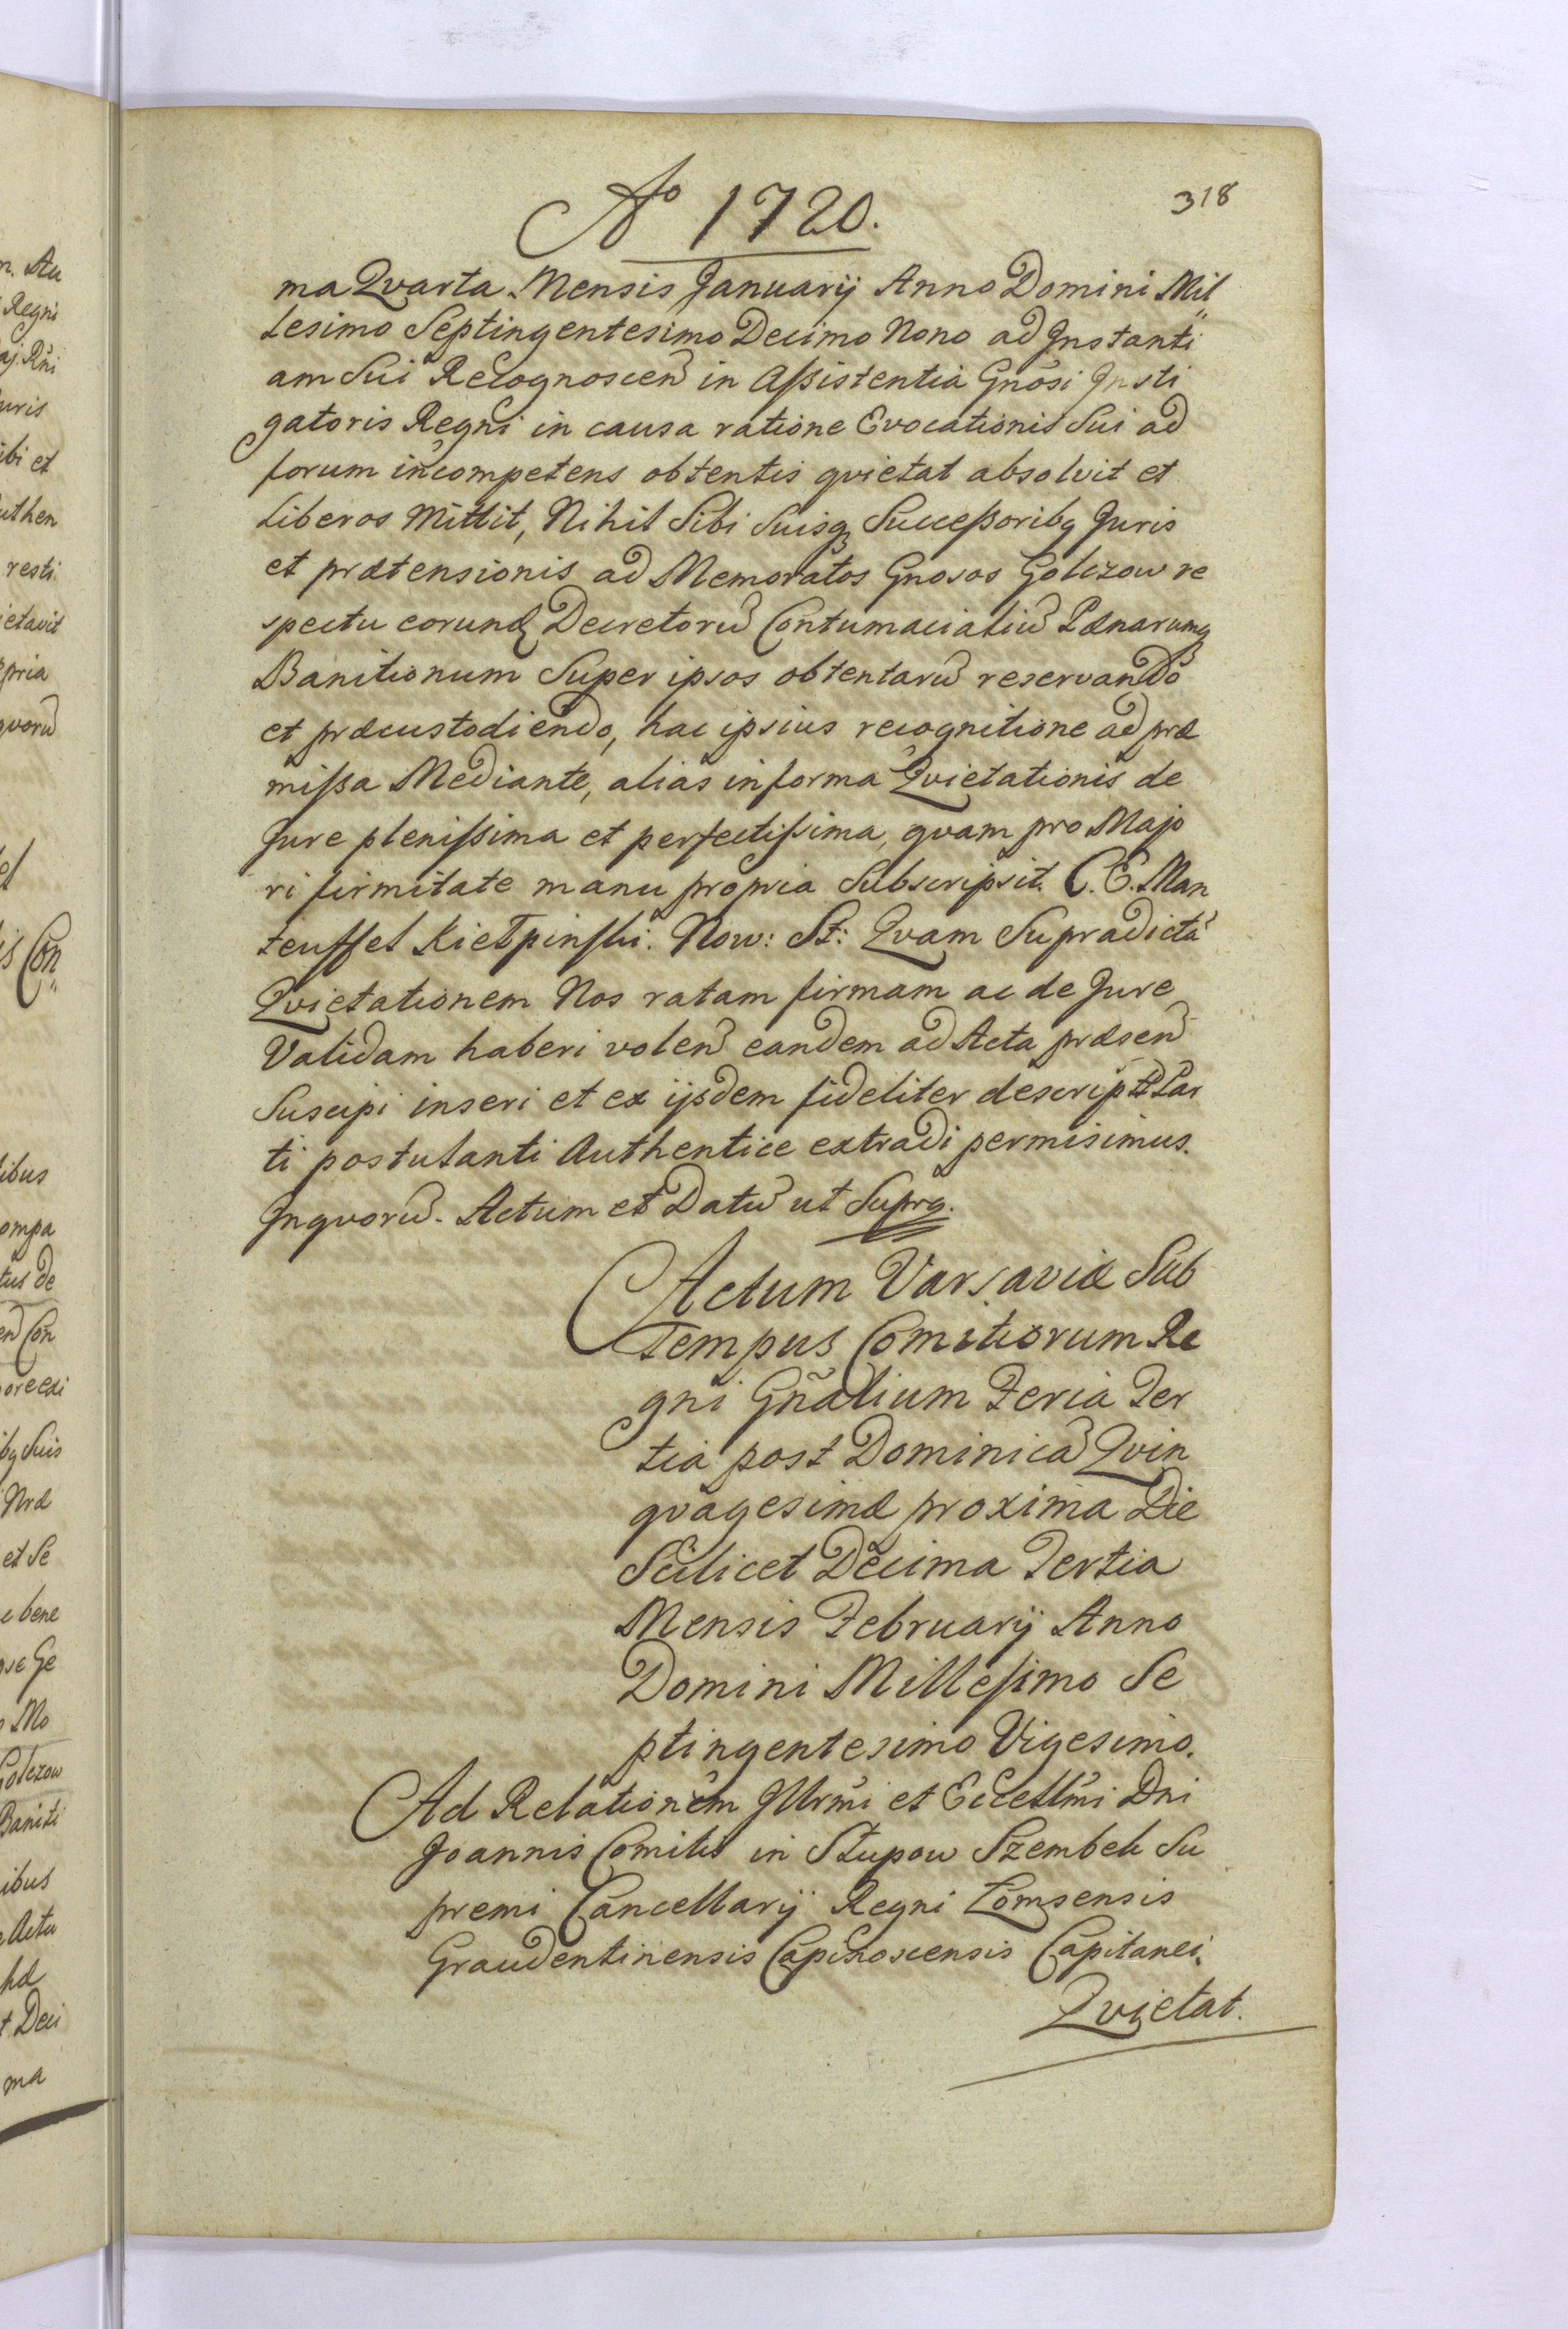 318
Aº 1720.
ma Qvarta Mensis Januarij Anno Domini Mil
lesimo Septingentesimo Decimo Nono ad Instanti
am Sui Recognoscen̄ in Aßistentia Gnõsi Insti
gatoris Regni in causa ratione Evocationis Sui ad
forum incompetens obtentis qvietat absolvit et
Liberos Mittit, Nihil Sibi Suisq Succeßoribq Juris
et prætensionis ad Memoratos Gnosos Golczow re
spectu eorund Decretorū Contumacialiū Pænarumq
Banitionum Super ipsos obtentarū reservando
et præcustodiendo, hac ipsius recognitione ad præ
mißa Mediante, alias in forma Qvietationis de
Jure plenißima et perfectißima, qvam pro Majo
ri firmitate manu propria Subscripsit. C. E. Man
teuffel Kiełpinski. Now: St: Qvam Supradictā
Qvietationem Nos ratam firmam ac de Jure
Validam haberi volen̄ eandem ad Acta præsen̄
Suscipi inseri et ex ijsdem fideliter descript Par
ti postulanti Authentice extradi permisimus.
Inqvorū. Actum et Datū ut Supra.
Actum Varsaviæ Sub
tempus Comitiorum Re
gni Gñalium Feria Ter
tia post Dominicā Qvin
qvagesimæ proxima Die
Scilicet Decima Tertia
Mensis Februarij Anno
Domini Millesimo Se
ptingentesimo Vigesimo.
Ad Relationem Illrmi et Excellmi Dni
Joannis Comitis in Słupow Szembek Su
premi Cancellarij Regni Lomsensis
Graudentinensis Capitanei.
Qvietat.

n. Au
Regni
uris
ibi et
uthen
resti
ietavit
pria
qvorū
Con
ibus
ompa
tus de
Con
bq Suis
Nræ
et Se
e bene
Mo
Golczow
Baniti
ibus
Actu
t Deci
ma